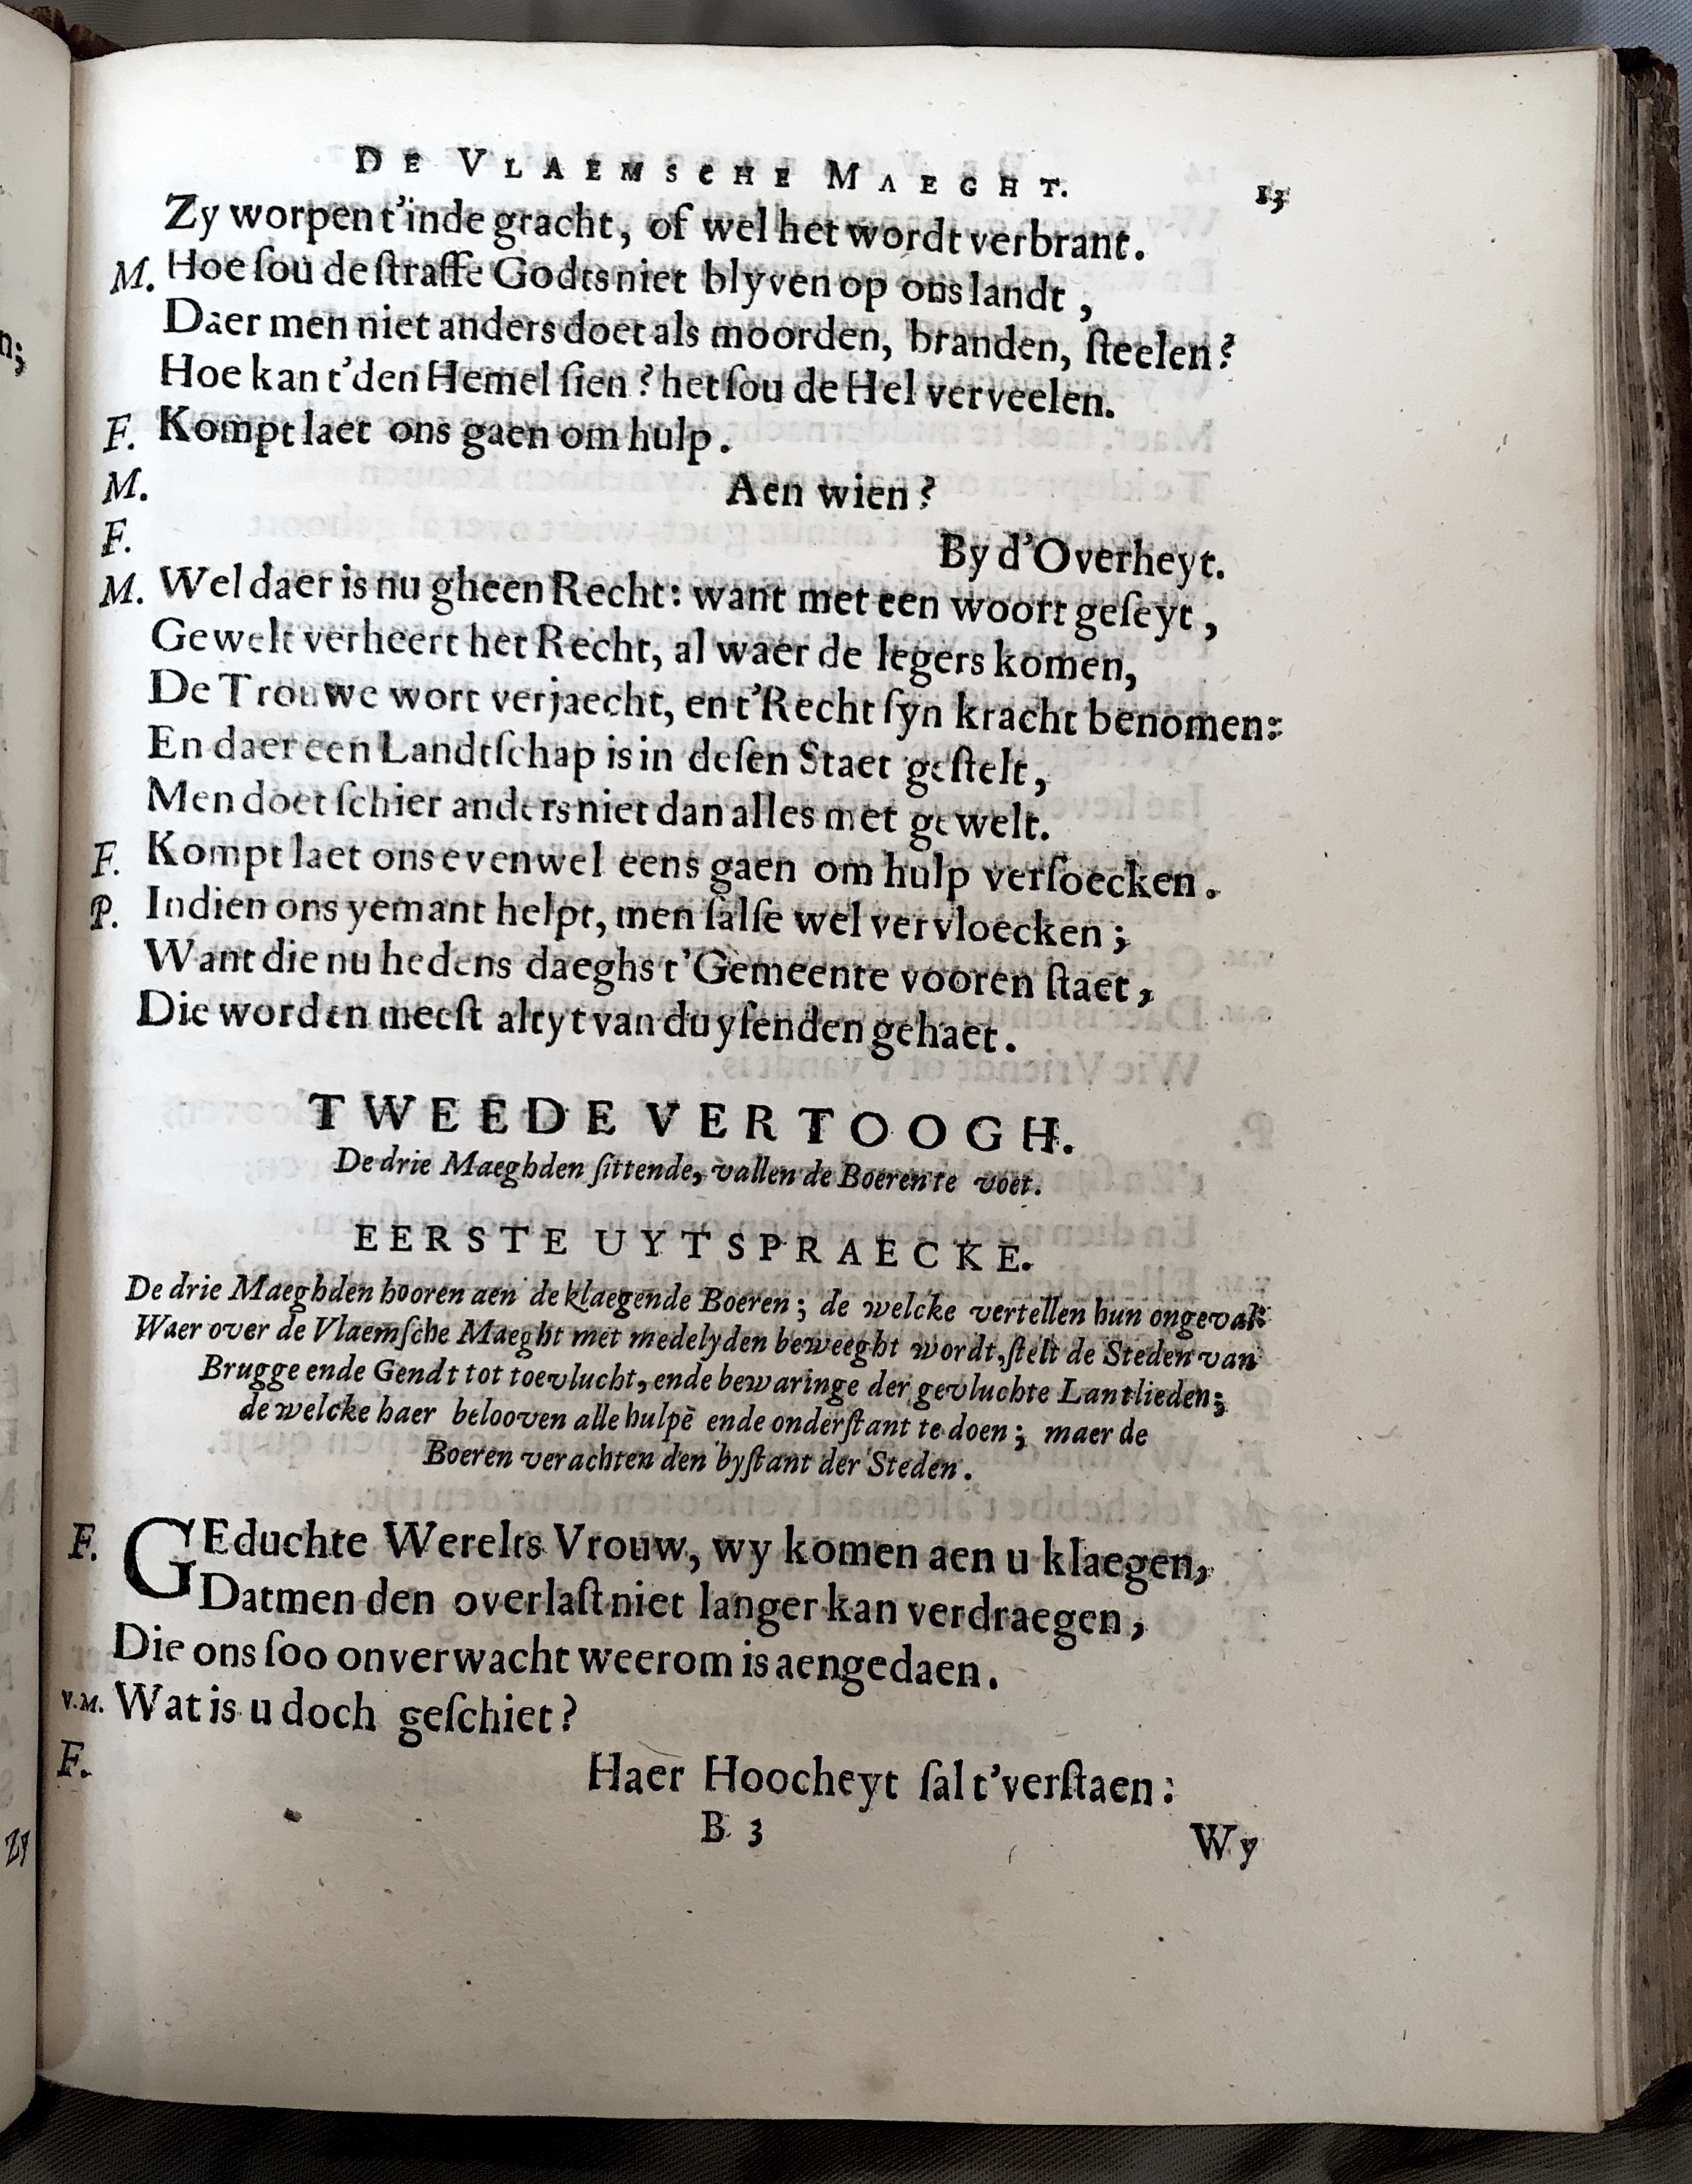 DE VLAEMSCHE MAEGHT. 13
Zy worpen t'inde gracht, of wel het wordt verbrant.
M. Hoe ſou de ſtraffe Godts niet blyven op ons landt,
Daer men niet anders doet als moorden, branden, ſteelen?
Hoe kan t'den Hemel ſien? het ſou de Hel verveelen.
F. Kompt laet ons gaen om hulp.
M. Aen wien?
F. By d'Overheyt.
M. Wel daer is nu gheen Recht: want met een woort geſeyt,
Gewelt verheert het Recht, al waer de legers komen,
De Trouwe wort verjaecht, en t'Recht ſyn kracht benomen:
En daer een Landtſchap is in deſen Staet geſtelt,
Men doet ſchier anders niet dan alles met gewelt.
F. Kompt laet ons evenwel eens gaen om hulp verſoecken.
P. Indien ons yemant helpt, men ſalſe wel vervloecken;
Want die nu hedens daeghs t'Gemeente vooren ſtaet,
Die worden meeſt altyt van duyſenden gehaet.
TWEEDE VERTOOGH.
De drie Maeghden ſittende, vallen de Boeren te voet.
EERSTE UYTSPRAECKE.
De drie Maeghden hooren aen de klaegende Boeren; de welcke vertellen hun ongeval:
Waer over de Vlaemſche Maeght met medelyden beweeght wordt, ſtelt de Steden van
Brugge ende Gendt tot toevlucht, ende bewaringe der gevluchte Lantlieden;
de welcke haer belooven alle hulpe ende onderſtant te doen; maer de
Boeren verachten den byſtant der Steden.
F. GEduchte Werelts Vrouw, wy komen aen u klaegen,
Datmen den overlaſt niet langer kan verdraegen,
Die ons ſoo onverwacht weerom is aengedaen.
V.M. Wat is u doch geſchiet?
F. Haer Hoocheyt ſal t'verſtaen:
B 3 Wy